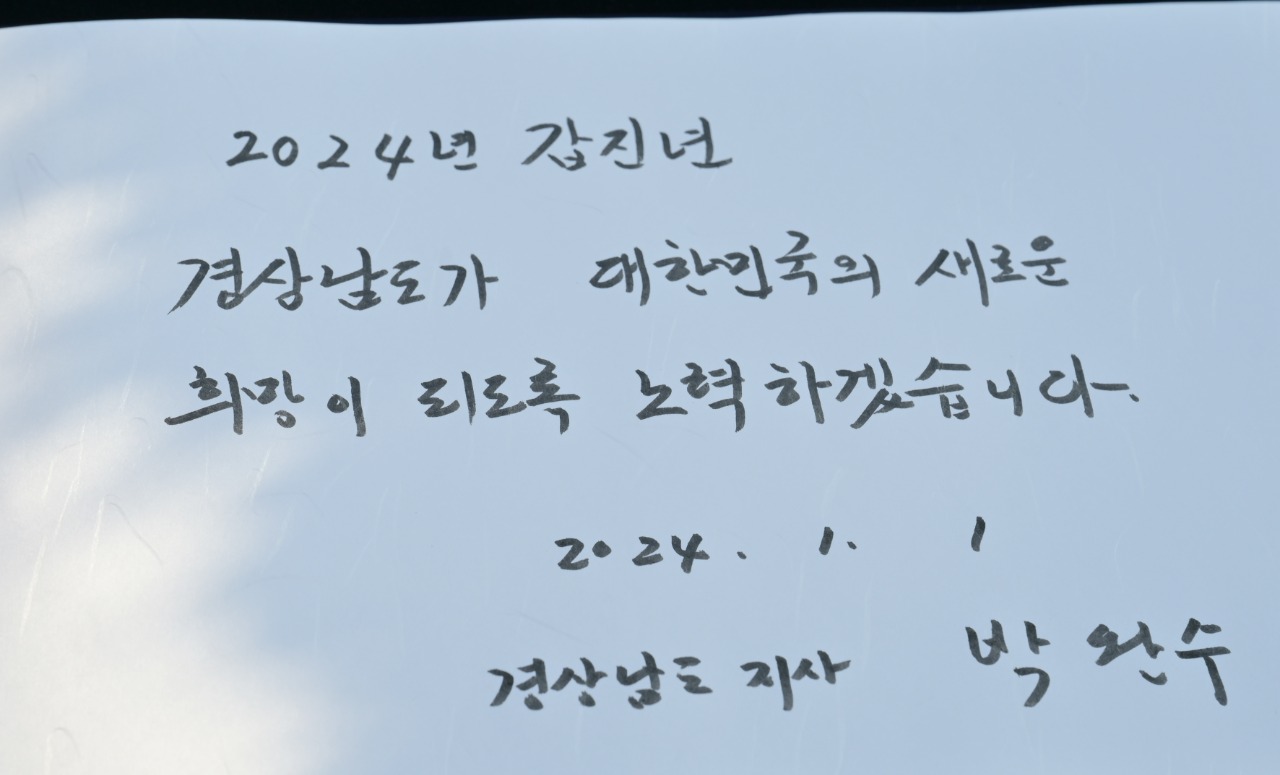 2024년 갑진년
경상남도가 대한민국의 새로운
희망이 되도록 노력하겠습니다.
2024. 1. 1
경상남도 지사 박완수